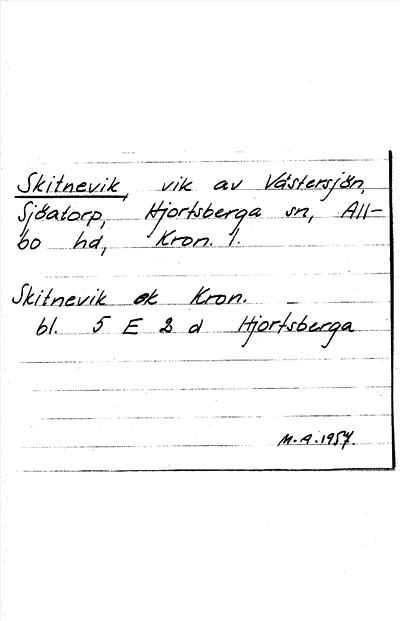 Skitnevik, vik av Västersjön,
Sjöatorp, Hjortsberga sn, All-
bo hd, Kron. l.
Skitnevik ek Kron. –
bl. 5 E 2 d Hjortsberga
M.A. 1957.